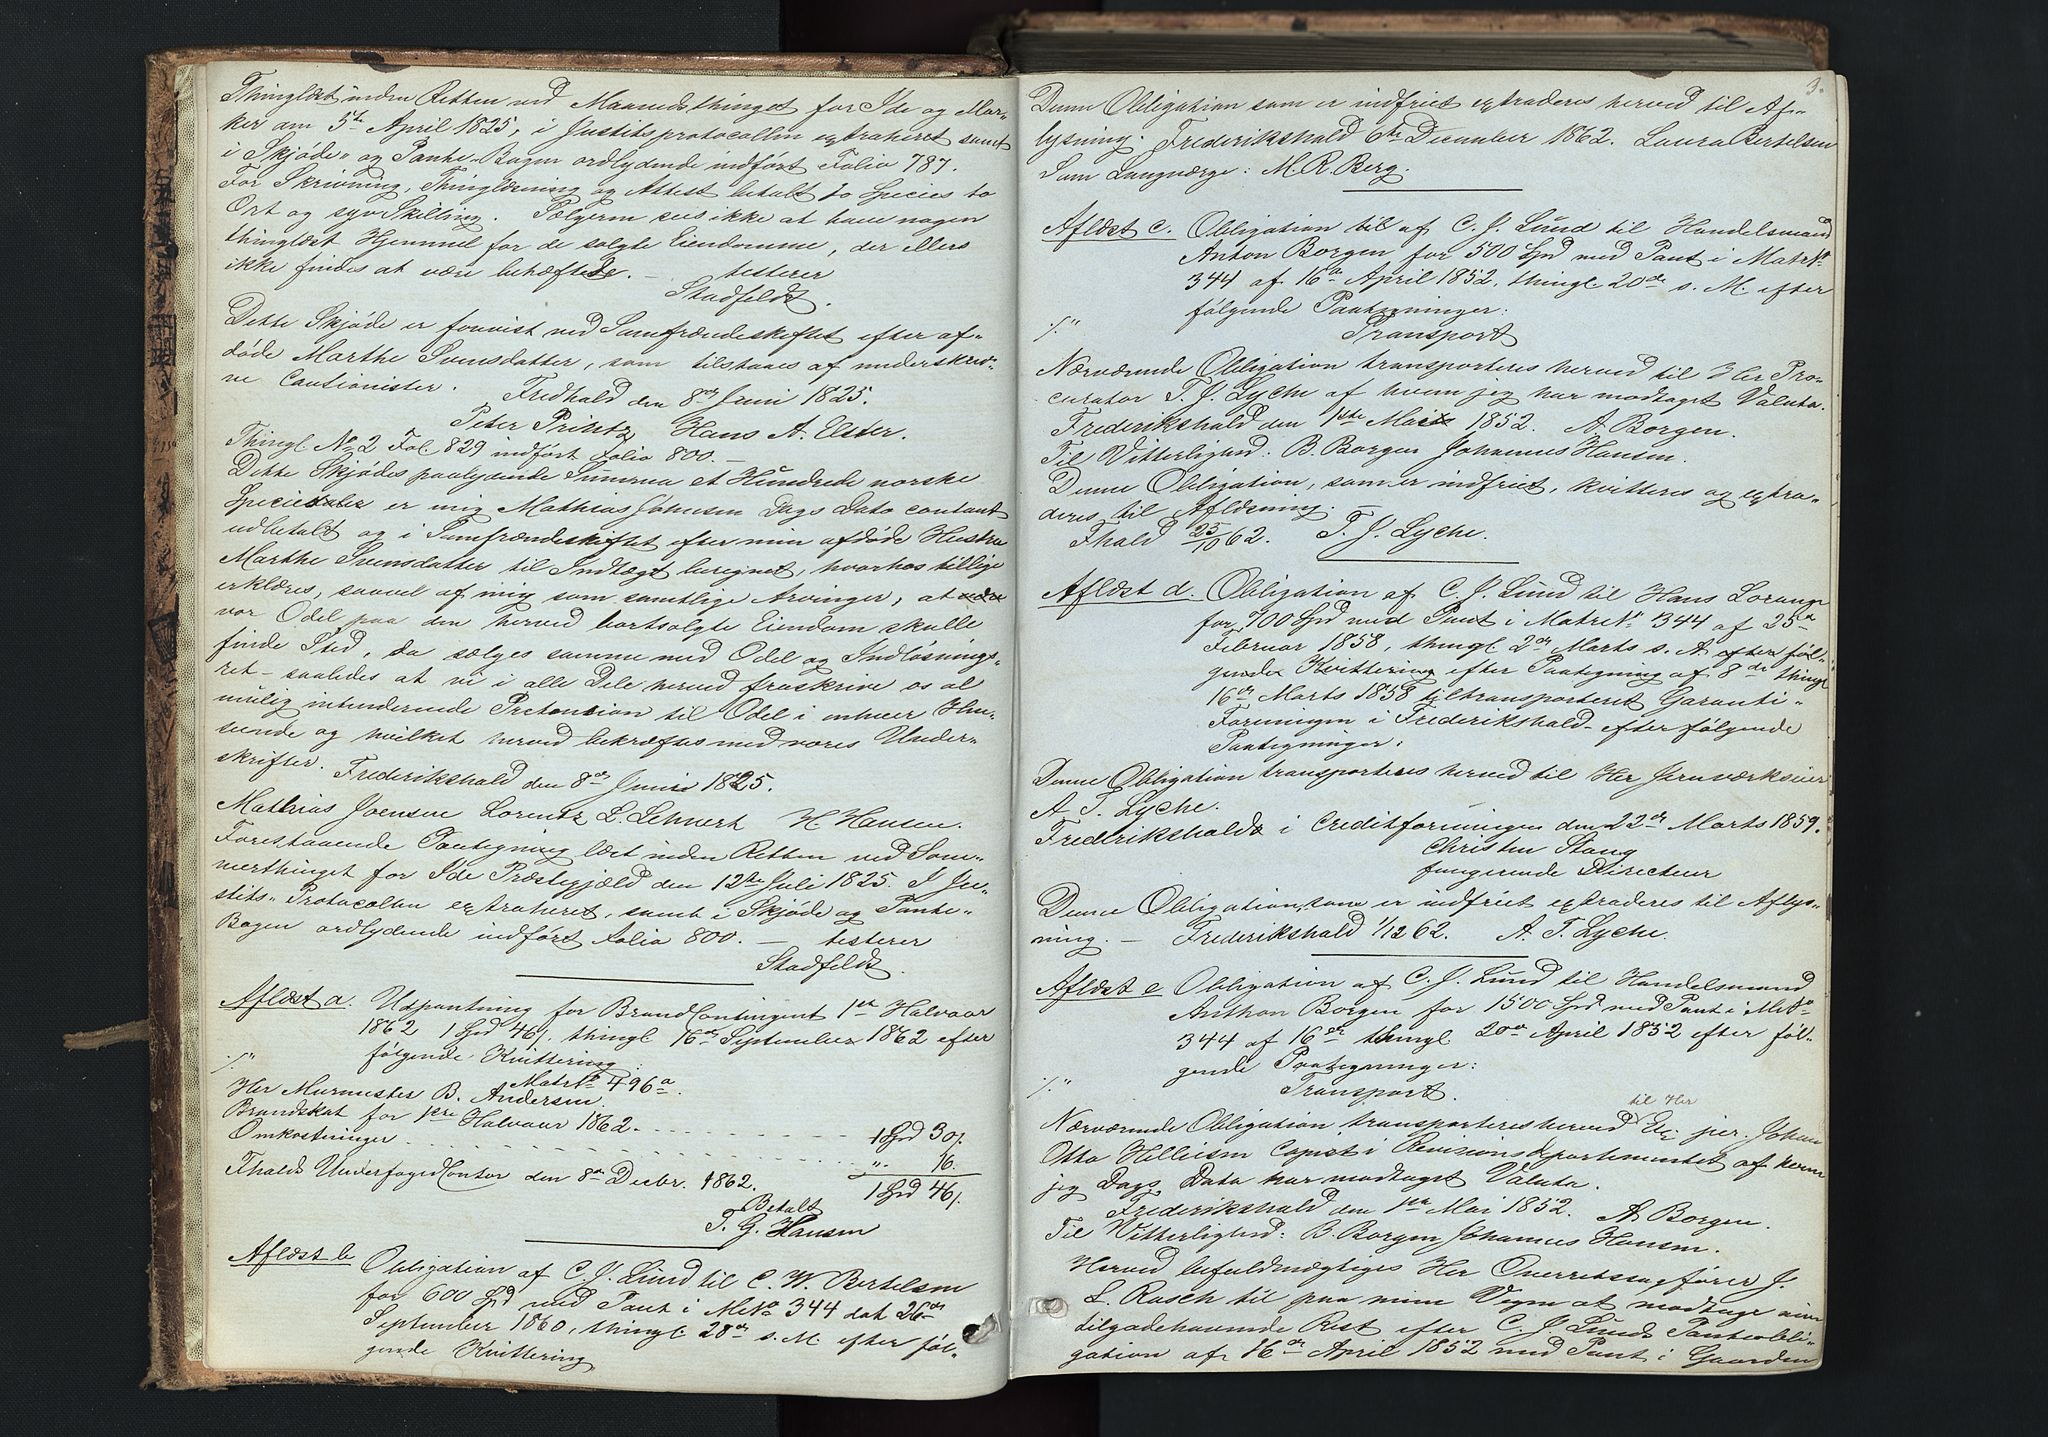 Thinglæst inden Retten ved Maanedsthinget for Ide og Mar-
ker den 5te April 1825, i Justitsprotocollen extraheret samt
i Skjøde- og Pante-Bogen ordlydende indført Folio 787.
For Skrivning, Thinglæsning og Attest betalt to Species to
Ort og syv Skilling. Sælgeren sees ikke at have nogen
thinglæst Hjemmel for de solgte Eiendomme, der ellers
ikke findes at være behæftede. — testerer
Stadfeldt.
Dette Skjøde er foreviist ved Samfrændeskiftet efter af-
døde Marthe Svensdatter, som tilstaaes af underskrev-
ne Cautionister. Fredhald den 8de Juni 1825.
Peter Printz Hans A. Elster.
Thingl No 2 Fol 829 indført Folio 800. —
Dette Skjødes paalydende Summa et Hundrede norske
Speciedaler er mig Mathias Johnsen Dags Dato contant
udbetalt og i Samfrændeskiftet efter min afdøde Hustru
Marthe Svensdatter til Indtægt beregnet, hvorhos tillige
erklæres, saavel af mig som samtlige Arvinger, at
vor Odel paa den herved bortsolgte Eiendom skulle
finde Sted, da sælges samme med Odel og Indløsnings-
ret - saaledes at vi i alle Dele herved fraskrive os al
muelig intenderende Prætension til Odel i enhver Hen-
seende og hvilket herved bekræftes med vores Under-
skrifter. Frederikshald den 8de Junii 1825.
Mathias Joensen Lorentz L. Lehnert H. Hansen.
Forestaaende Paategning læst inden Retten ved Som-
merthinget for Ide Præstegjæld den 12te Juli 1825. I Ju-
stits-Protocollen extraheret, samt i Skjøde og Pante-
Bogen ordlydende indført Folio 800. — testerer
Stadfeldt.
Aflæst a. Udpantning for Brandcontingent 1ste Halvaar
1862 1 Spd 46 /, thingl 16de September 1862 efter
følgende Kvittering:
/. "
Matr No 496 a.
Her Murmester B. Andersen.
Brandskat for 1ste Halvaar 1862. 1 Spd 30 /.
Omkostninger " 16.
1 Spd 46 /.
Fhalds Underfogedcontor den 8de Decbr. 1862.
Betalt
T. G. Hansen
Aflæst b Obligation af C. J. Lund til C. W. Bertelsen
for 600 Spd med Pant i M No 344 dat 26de
September 1860, thingl 28de s. M. efter føl-
gende Kvittering
3.
Denne Obligation som er indfriet extraderes herved til Af-
lysning. Frederikshald 6te December 1862. Laura Bertelsen
Som Laugværge: M. R. Berg.
Aflæst c. Obligation til af C. J. Lund til Handelsmand
Anton Borgen for 500 Spd med Pant i Matr No
344 af 16de April 1852. thingl 20de s. M. efter
følgende Paategninger:
/. "
Transport
Nærværende Obligation transporteres herved til Her Pro-
curator T. J. Lyche af hvem jeg har modtaget Valuta.
Frederikshald den 1ste Mai 1852. A. Borgen.
Til Vitterlighed: B. Borgen Johannes Hansen.
Denne Obligation, som er indfriet, kvitteres og extra-
deres til Aflæsning. —
Fhald 25/10 62. T. J. Lyche.
Aflæst d. Obligation af C. J. Lund til Hans Lorange
for 700 Spd med Pant i Matr No 344 af 25de
Februar 1858, thingl 2de Marts s. A. efter føl-
gende Kvittering efter Paategning af 8de thingl
16de Marts 1858 tiltransporteret Garanti-
Foreningen i Frederikshald - efter følgende
Paategninger:
Denne Obligation transporteres herved til Her Jernværkseier
A. T. Lyche.
Frederikshalds i Creditforeningen den 22de Marts 1859.
Christen Stang
fungerende Directeur
Denne Obligation, som er indfriet extraderes til Aflys-
ning. — Frederikshald 1/12 62. A. T. Lyche.
Aflæst e Obligation af C. J. Lund til Handelsmand
Anthon Borgen for 1500 Spd med Pant i M No
344 af 16de thingl 20de April 1852 efter føl-
gende Paategninger:
/. "
Transport.
til Her
Nærværende Obligation transporteres herved Johan
Otto Hellesen Copist i Revisionsdepartementet af hvem
jeg Dags Dato har modtaget Valuta.
Frederikshald den 1ste Mai 1852. A. Borgen.
Til Vitterlighed: B. Borgen Johannes Hansen.
Herved befuldmægtiges Her Overretssagfører J.
L. Rasch til paa mine Vegne at modtage min
tilgodehavende Rest efter C. J. Lunds Panteobli-
gation af 16de April 1852 med Pant i Gaarden